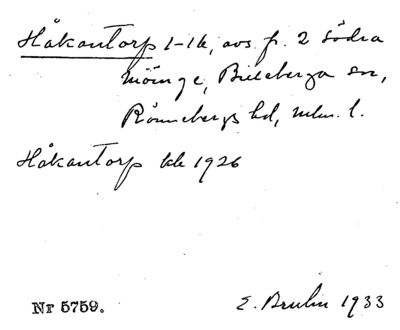 Håkantorp 1-16, avs. fr. 2 södra
Möinge, Billeberga sn,
Rönnebergs hd, mlm. l.
Håkantorp kk 1926
Nr 5759. E. Bruhn 1933